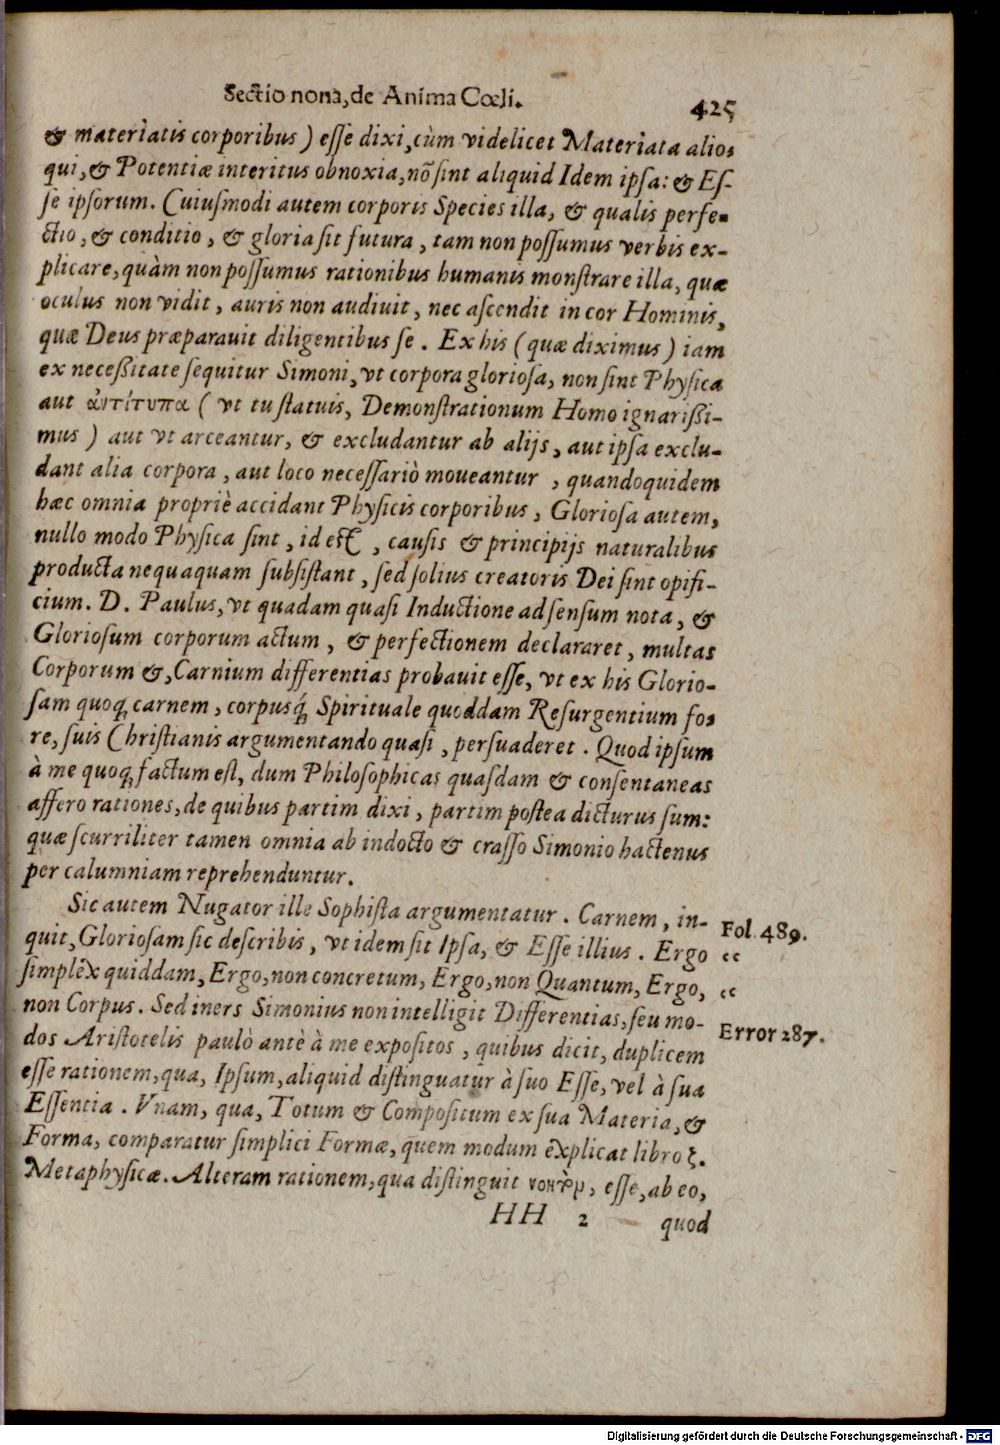 Sectio nona, de Anima Cœli.
425
& materiatis corporibus) esse dixi, cùm videlicet Materiata alio-
qui, & Potentiæ interitus obnoxia, nõ sint aliquid Idem ipsa: & Es-
se ipsorum. Cuiusmodi autem corporis Species illa, & qualis perfe-
ctio, & conditio, & gloria sit futura, tam non possumus verbis ex-
plicare, quàm non possumus rationibus humanis monstrare illa, quæ
oculus non vidit, auris non audiuit, nec ascendit in cor Hominis,
quæ Deus præparauit diligentibus se. Ex his (quæ diximus) iam
ex necessitate sequitur Simoni, vt corpora gloriosa, non sint Physica
aut ἀντίτυπα (vt tu statuis, Demonstrationum Homo ignarissi-
mus) aut vt arceantur, & excludantur ab alijs, aut ipsa exclu-
dant alia corpora, aut loco necessariò moueantur, quandoquidem
hæc omnia propriè accidant Physicis corporibus, Gloriosa autem,
nullo modo Physica sint, id est, causis & principijs naturalibus
producta nequaquam subsistant, sed solius creatoris Dei sint opifi-
cium. D. Paulus, vt quadam quasi Inductione ad sensum nota, &
Gloriosum corporum actum, & perfectionem declararet, multas
Corporum &, Carnium differentias probauit esse, vt ex his Glorio-
sam quoq́; carnem, corpusq́; Spirituale quoddam Resurgentium fo-
re, suis Christianis argumentando quasi, persuaderet. Quod ipsum
à me quoq; factum est, dum Philosophicas quasdam & consentaneas
affero rationes, de quibus partim dixi, partim postea dicturus sum:
quæ scurriliter tamen omnia ab indocto & crasso Simonio hactenus
per calumniam reprehenduntur.
Sic autem Nugator ille Sophista argumentatur. Carnem, in-
Fol. 489.
quit, Gloriosam sic describis, vt idem sit Ipsa, & Esse illius. Ergo
“
simplex quiddam, Ergo, non concretum, Ergo, non Quantum, Ergo,
“
non Corpus. Sed iners Simonius non intelligit Differentias, seu mo-
Error 287.
dos Aristotelis paulò antè à me expositos, quibus dicit, duplicem
esse rationem, qua, Ipsum, aliquid distinguatur à suo Esse, vel à sua
Essentia. Vnam, qua, Totum & Compositum ex sua Materia, &
Forma, comparatur simplici Formæ, quem modum explicat libro ζ.
Metaphysicæ. Alteram rationem, qua distinguit, esse, ab eo,
HH 2
quod
Digitalisierung gefördert durch die Deutsche Forschungsgemeinschaft - DFG